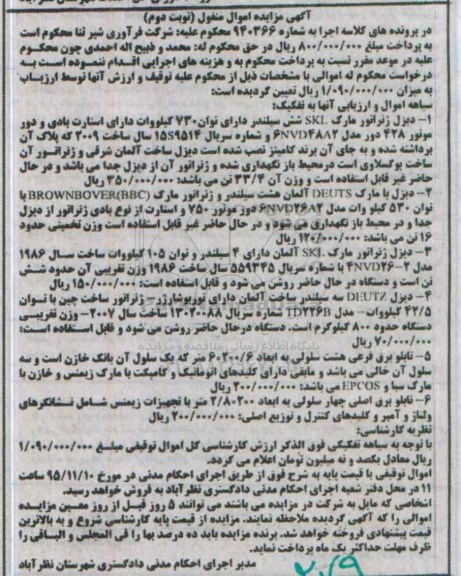 آگهی مزایده اموال منقول (نوبت دوم)
در پرونده های کلاسه اجرا به شماره ۹۴۰۳۶۶ محکوم علیه: شرکت فرآوری شیر ثنا محکوم است
به پرداخت مبلغ ۸۰۰/۰۰۰/۰۰۰ ریال در حق محکوم له: محمد و ذبیح اله احمدی چون محکوم
علیه در موعد مقرر نسبت به پرداخت محکوم به و هزینه های اجرایی اقدام ننموده است به
درخواست محکوم له اموالی با مشخصات ذیل از محکوم علیه توقیف و ارزش آنها توسط ارزیاب
به میزان ۱/۰۹۰/۰۰۰/۰۰۰ ریال تعیین گردیده است:
سیاهه اموال و ارزیابی آنها به تفکیک:
۱- دیزل ژنراتور مارک SKL شش سیلندر دارای توان ۷۳۰ کیلووات دارای استارت بادی و دور
موتور ۴۲۸ دور مدل ۶NVD۴۸۸۲ و شماره سریال ۱۵S۹۵۱۴ سال ساخت ۲۰۰۹ که پلاک آن
برداشته شده و به جای آن برند کامینز نصب شده است دیزل ساخت آلمان شرقی و ژنراتور آن
ساخت یوگسلاوی است درمحیط باز نگهداری شده و ژنراتور آن از دیزل جدا می باشد و در حال
حاضر غیر قابل استفاده است و وزن آن ۳۳/۴ تن می باشد: ۳۵۰/۰۰۰/۰۰۰ ریال
۲- دیزل با مارک DEUTS آلمان هشت سیلندر و ژنراتور مارک BROWNBOVER(BBC) با
توان ۵۳۰ کیلو وات مدل ۶NVD۲۶۸۲ دور موتور ۷۵۰ و استارت از نوع بادی ژنراتور از دیزل
جدا و در محیط باز نگهداری می شود و در حال حاضر غیر قابل استفاده است وزن تخمینی حدود
۱۶ تن می باشد: ۱۲۰/۰۰۰/۰۰۰ ریال
۳- دیزل ژنراتور مارک SKL آلمان دارای ۴ سیلندر و توان ۱۰۵ کیلووات ساخت سال ۱۹۸۶
مدل ۲-۴NVD۲۶ با شماره سریال ۵۵۹۳۴۵ سال ساخت ۱۹۸۶ وزن تقریبی آن حدود شش
تن است و دستگاه در حال حاضر روشن می شود و قابل استفاده است: ۱۵۰/۰۰۰/۰۰۰ ریال
۴- دیزل DEUTZ سه سیلندر ساخت آلمان دارای توربوشارژر- ژنراتور ساخت چین با توان
۴۲/۵ کیلووات- مدل TD۲۲۶B شماره سریال ۱۳۰۴۰۰۸۸ ساخت سال ۲۰۰۷- وزن تقریبی
دستگاه حدود ۸۰۰ کیلوگرم است. دستگاه درحال حاضر روشن می شود و قابل استفاده است:
۷۰/۰۰۰/۰۰۰ ریال
۵- تابلو برق فرعی هشت سلولی به ابعاد ۶۰۲۰۰/۶ متر که یک سلول آن بانک خازن است و سه
سلول آن خالی می باشد و مابقی دارای کلیدهای اتوماتیک و کامپکت با مارک زیمنس و خازن با
مارک سبا و EPCOS می باشد: ۲۰۰/۰۰۰/۰۰۰ ریال
۶- تابلو برق اصلی چهار سلولی به ابعاد ۲/۸۰۲۰۰ متر با تجهیزات زیمنس شامل نشانگرهای
ولتاژ و آمپر و کلیدهای کنترل و توزیع اصلی: ۲۰۰/۰۰۰/۰۰۰ ریال
نظریه کارشناسی:
با توجه به سیاهه تفکیکی فوق الذکر ارزش کارشناسی کل اموال توقیفی مبلغ ۱/۰۹۰/۰۰۰/۰۰۰
ریال معادل یکصد و نه میلیون تومان اعلام می گردد.
اموال توقیفی با قیمت پایه به شرح فوق از طریق اجرای احکام مدنی در مورخ ۹۵/۱۱/۱۰ ساعت
۱۱ در محل دفتر شعبه اجرای احکام مدنی دادگستری نظرآباد به فروش خواهد رسید.
اشخاصی که مایل به شرکت در مزایده می باشند می توانند ۵ روز قبل از روز معین مزایده
اموالی را که آگهی گردیده ملاحظه نمایند. مزایده از قیمت پایه کارشناسی شروع و به بالاترین
قیمت پیشنهادی فروخته خواهد شد. برنده مزایده باید ده درصد بها را فی المجلس و الباقی را
ظرف مهلت حداکثر یک ماه پرداخت نماید.
مدیر اجرای احکام مدنی دادگستری شهرستان نظرآباد